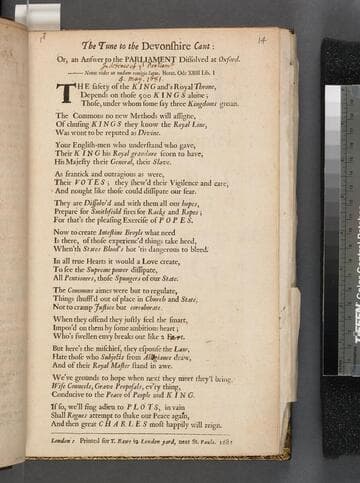 14
The Tune to the Devonshire Cant:
Or, an Answer to the PARLIAMENT Dissolved at Oxford.
In defence of ye Parliamt
Nonne vides ut nudum remigio latus. Horat. Ode XIIII Lib. I
4. May. 1681.
THe safety of the KING and's Royal Throne,
Depends on those 500 KINGS alone;
Those, under whom some say three Kingdoms groan.
The Commons no new Methods will assigne,
Of chusing KINGS they know the Royal Line,
Was wont to be reputed as Divine.
Your English-men who understand who gave,
Their KING his Royal grandure scorn to have,
His Majesty their General, their Slave.
As frantick and outragious as were,
Their VOTES; they shew'd their Vigilence and care,
And nought like those could dissipate our fear.
They are Dissolv'd and with them all our hopes,
Prepare for Smithfield fires for Racks and Ropes;
For that's the pleasing Exercise of POPES.
Now to create Intestine Broyls what need
Is there, of those experienc'd things take heed,
When th' States Blood's hot 'tis dangerous to bleed.
In all true Hearts it would a Love create,
To see the Supreme power dissipate,
All Pentioners, those Spungers of our State.
The Commons aimes were but to regulate,
Things shuff'd out of place in Church and State,
Nor to cramp Justice but coroborate.
When they offend they justly feel the smart,
Impos'd on them by some ambitious heart;
Who's swellen envy breaks out like a Fart.
But here's the mischief, they espouse the Law,
Hate those who Subjects from Allegiance draw,
And of their Royal Master stand in awe.
We've grounds to hope when next they meet they'l bring
Wise Councels, Grave Proposals, ev'ry thing,
Conducive to the Peace of People and KING.
If so, we'll sing adieu to PLOTS, in vain
Shall Rogues attempt to shake our Peace again,
And then great CHARLES most happily will reign.
London: Printed for T. Rawe in London yard, near St. Pauls. 1681